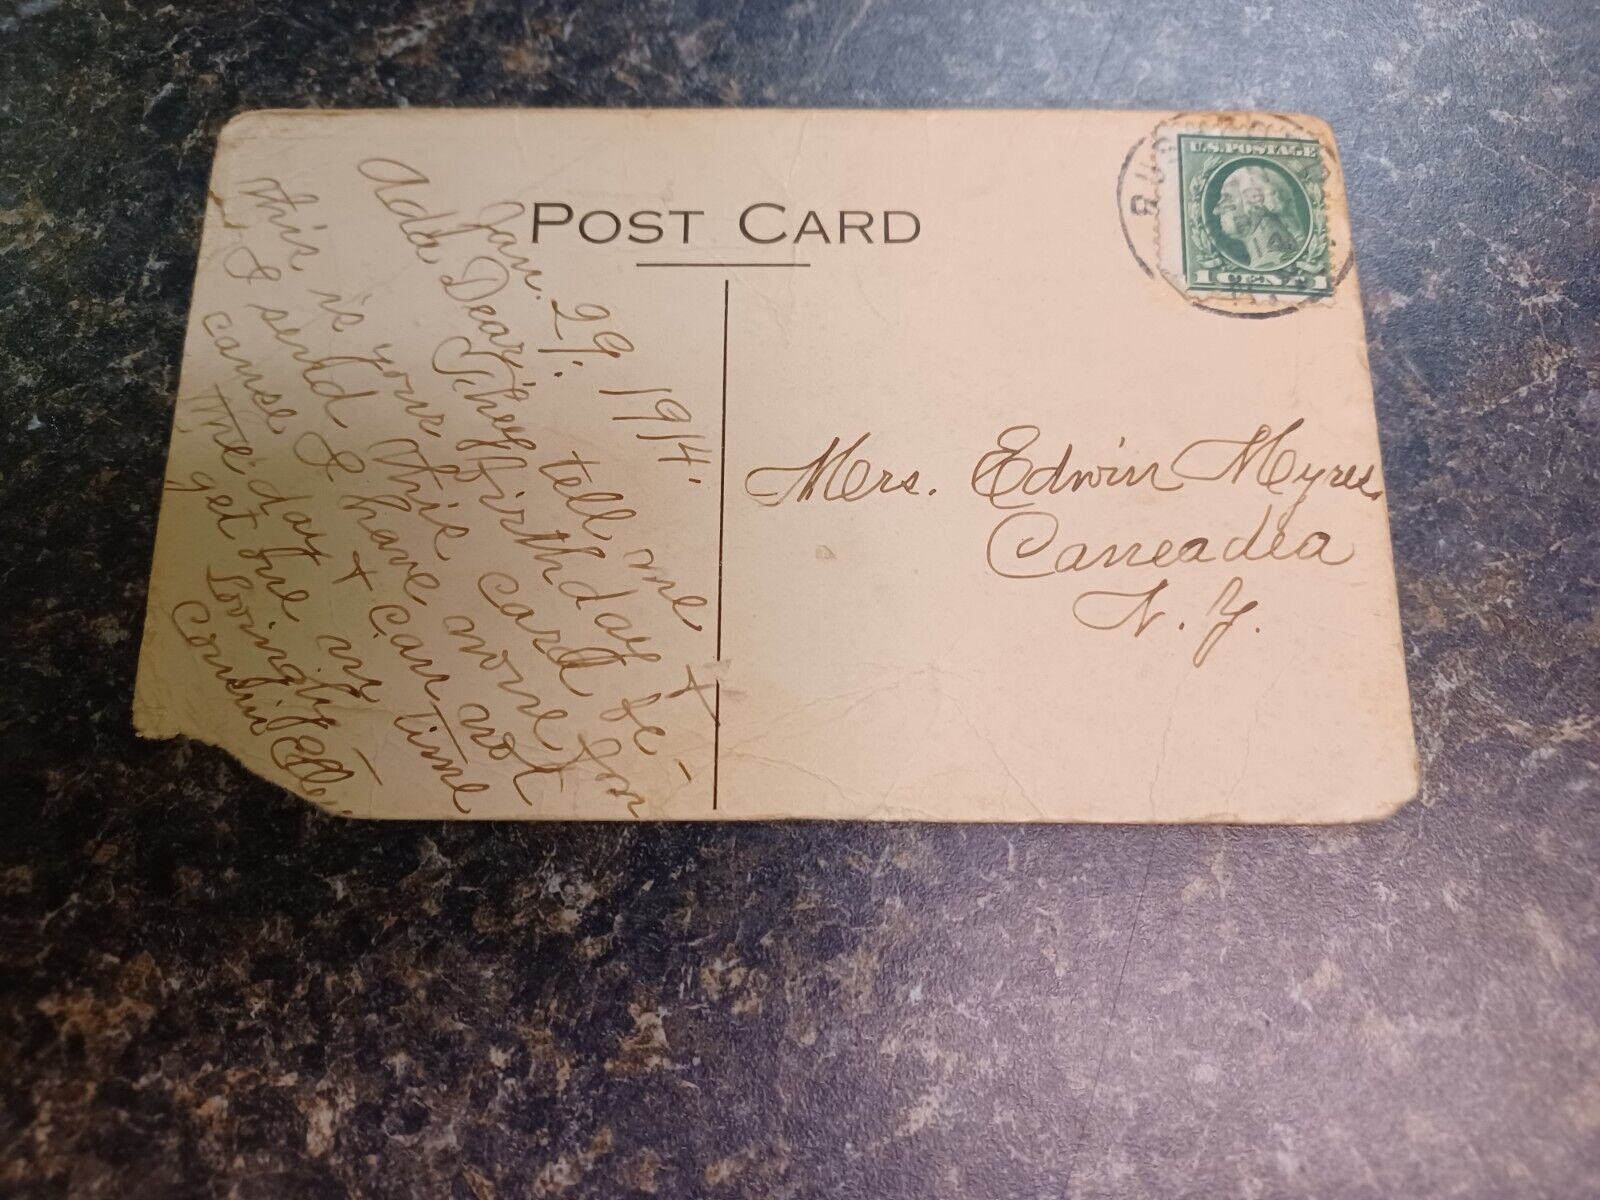 POST CARD
U.S. POSTAGE
1 CENT 1
Jan. 29, 1914.
Ada Dear:
They tell me
this is your birthday +
I send this card be-
cause I have none for
the day + can not
get one in time
Lovingly
Cousin
Mrs. Edwin Myres
Caneadea
N. Y.